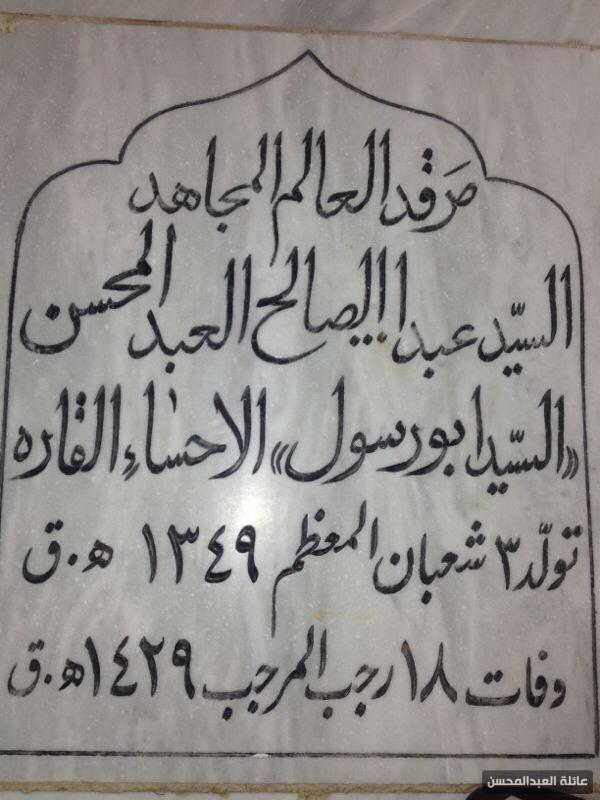 مرقد العالم المجاهد
السيّد عبدالله الصالح العبدالمحسن
«السيّد ابورسول» الاحساء القاره
تولّد ٣ شعبان المعظم ١٣٤٩ ه.ق
وفات ١٨ رجب المرجب ١٤٢٩ ه.ق
عائلة العبدالمحسن